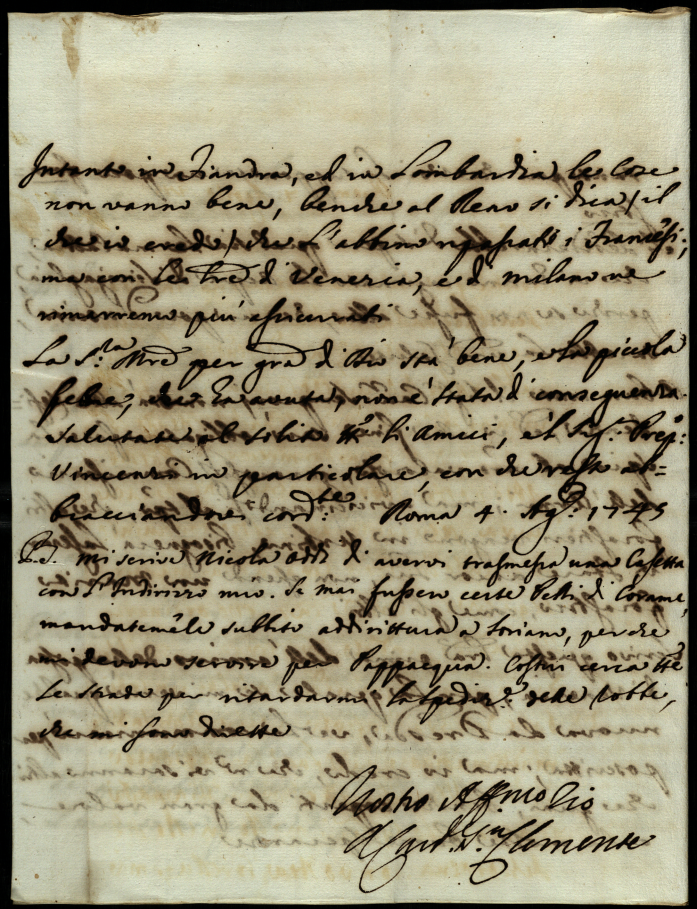 Intanto in Fiandra, ed in Lombardia le Cose
non vanno bene, benche al Reno si dica / il
che io credo / che l'abbino ripassato i Francesi;
ma con le lre di Venezia, e di Milano ne
rimarremo più assicurati
La S.ra Mre per gra di Dio stà bene, e la piccola
febre, che hà avuta, non è stata di conseguenza.
Salutate al solito li Amici, e'l Sig.r Prep.o
Vincenzi in particolare, con che resto ab=
bracciandovi cord.te Roma 4. Ag.o 1745
P.S. Mi scrive Nicola Oddi di avervi trasmessa una Casetta
con l'Indirizzo mio. Se mai fussero certe Pelli di Corame,
mandatemele subbito addirittura a Soriano, perche
mi devono servire per Pappacqua. Costui cerca tutte
le strade per ritardarmi la spediz.e delle botte,
che mi sono dirette
Vostro Affmo Zio
A Card. Clemente